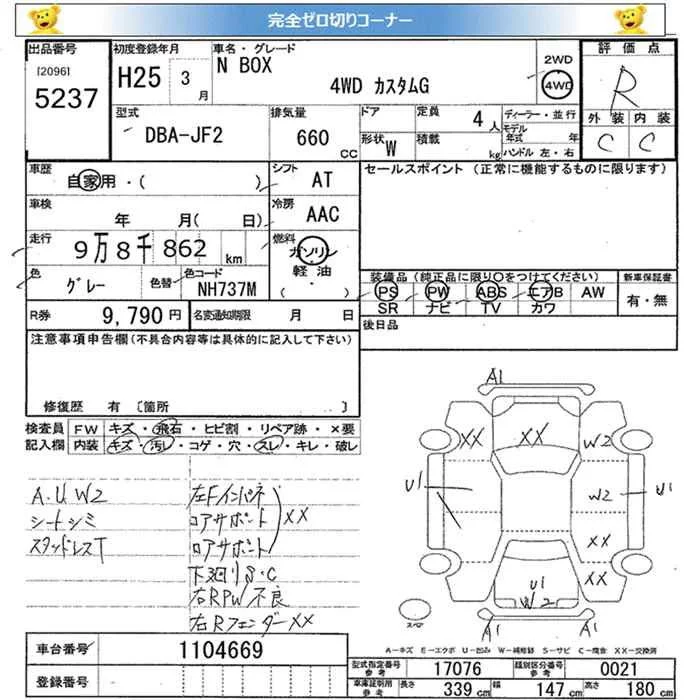 完全ゼロ切りコーナー
出品番号
[2096]
5237
初度登録年月
H25 3月
車名・グレード
N BOX
4WD カスタムG
2WD
4WD
評価点
R
外装 内装
C C
型式
DBA-JF2
排気量
660 CC
ドア
形状 W
定員 4人
積載 kg
ディーラー・並行
モデル年式 年
ハンドル 左・右
車歴
自家用・( )
シフト
AT
車検
年 月( 日)
冷房
AAC
走行
9万8千862 km
燃料
ガソリン
軽油
( )
色
グレー
色替
色コード
NH737M
R券 9,790円
名変通知期限 月 日
セールスポイント(正常に機能するものに限ります)
装備品(純正品に限り○をつけてください)
PS PW ABS エアB AW
SR ナビ TV カワ
新車保証書
有・無
後日品
注意事項申告欄(不具合内容等は具体的に記入して下さい)
修復歴 有 〔箇所 〕
検査員 FW キズ・飛石・ヒビ割・リペア跡・×要
記入欄 内装 キズ・汚レ・コゲ・穴・スレ・キレ・破レ
A.U W2
シートシミ
スタッドレスT
左Fインパネ
コアサポート XX
ロアサポート
下廻りS・C
右RPW不良
右RフェンダーXX
A1
XX
XX
W2
U1
W2
U1
XX
XX
U1
W2
A1
A1
スペア
A-キズ E-エクボ U-凹み W-補修跡 S-サビ C-腐食 XX-交換済
車台番号 1104669
登録番号
型式指定番号 参考 17076
類別区分番号 参考 0021
車庫証明用 参考
長さ 339cm 幅 147cm 高さ 180cm